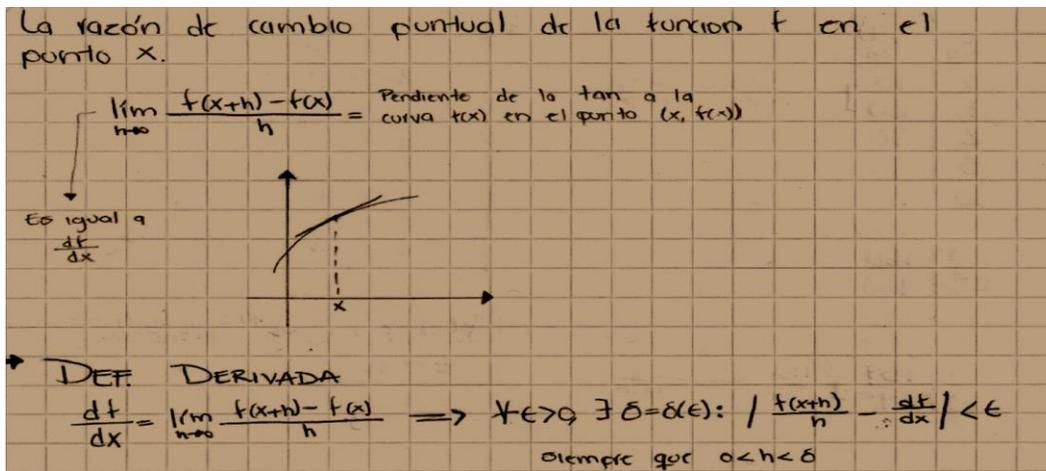 La razón de cambio puntual de la funcion f en el
punto x.
lím f(x+h) - f(x) / h = Pendiente de la tan a la
h→0 curva f(x) en el punto (x, f(x))
Es igual a
df/dx
x
→ DEF. DERIVADA
df/dx = lím h→0 f(x+h) - f(x) / h ⟹ ∀ϵ>0, ∃ δ=δ(ϵ): | f(x+h)/h - df/dx | < ϵ
siempre que 0<h<δ